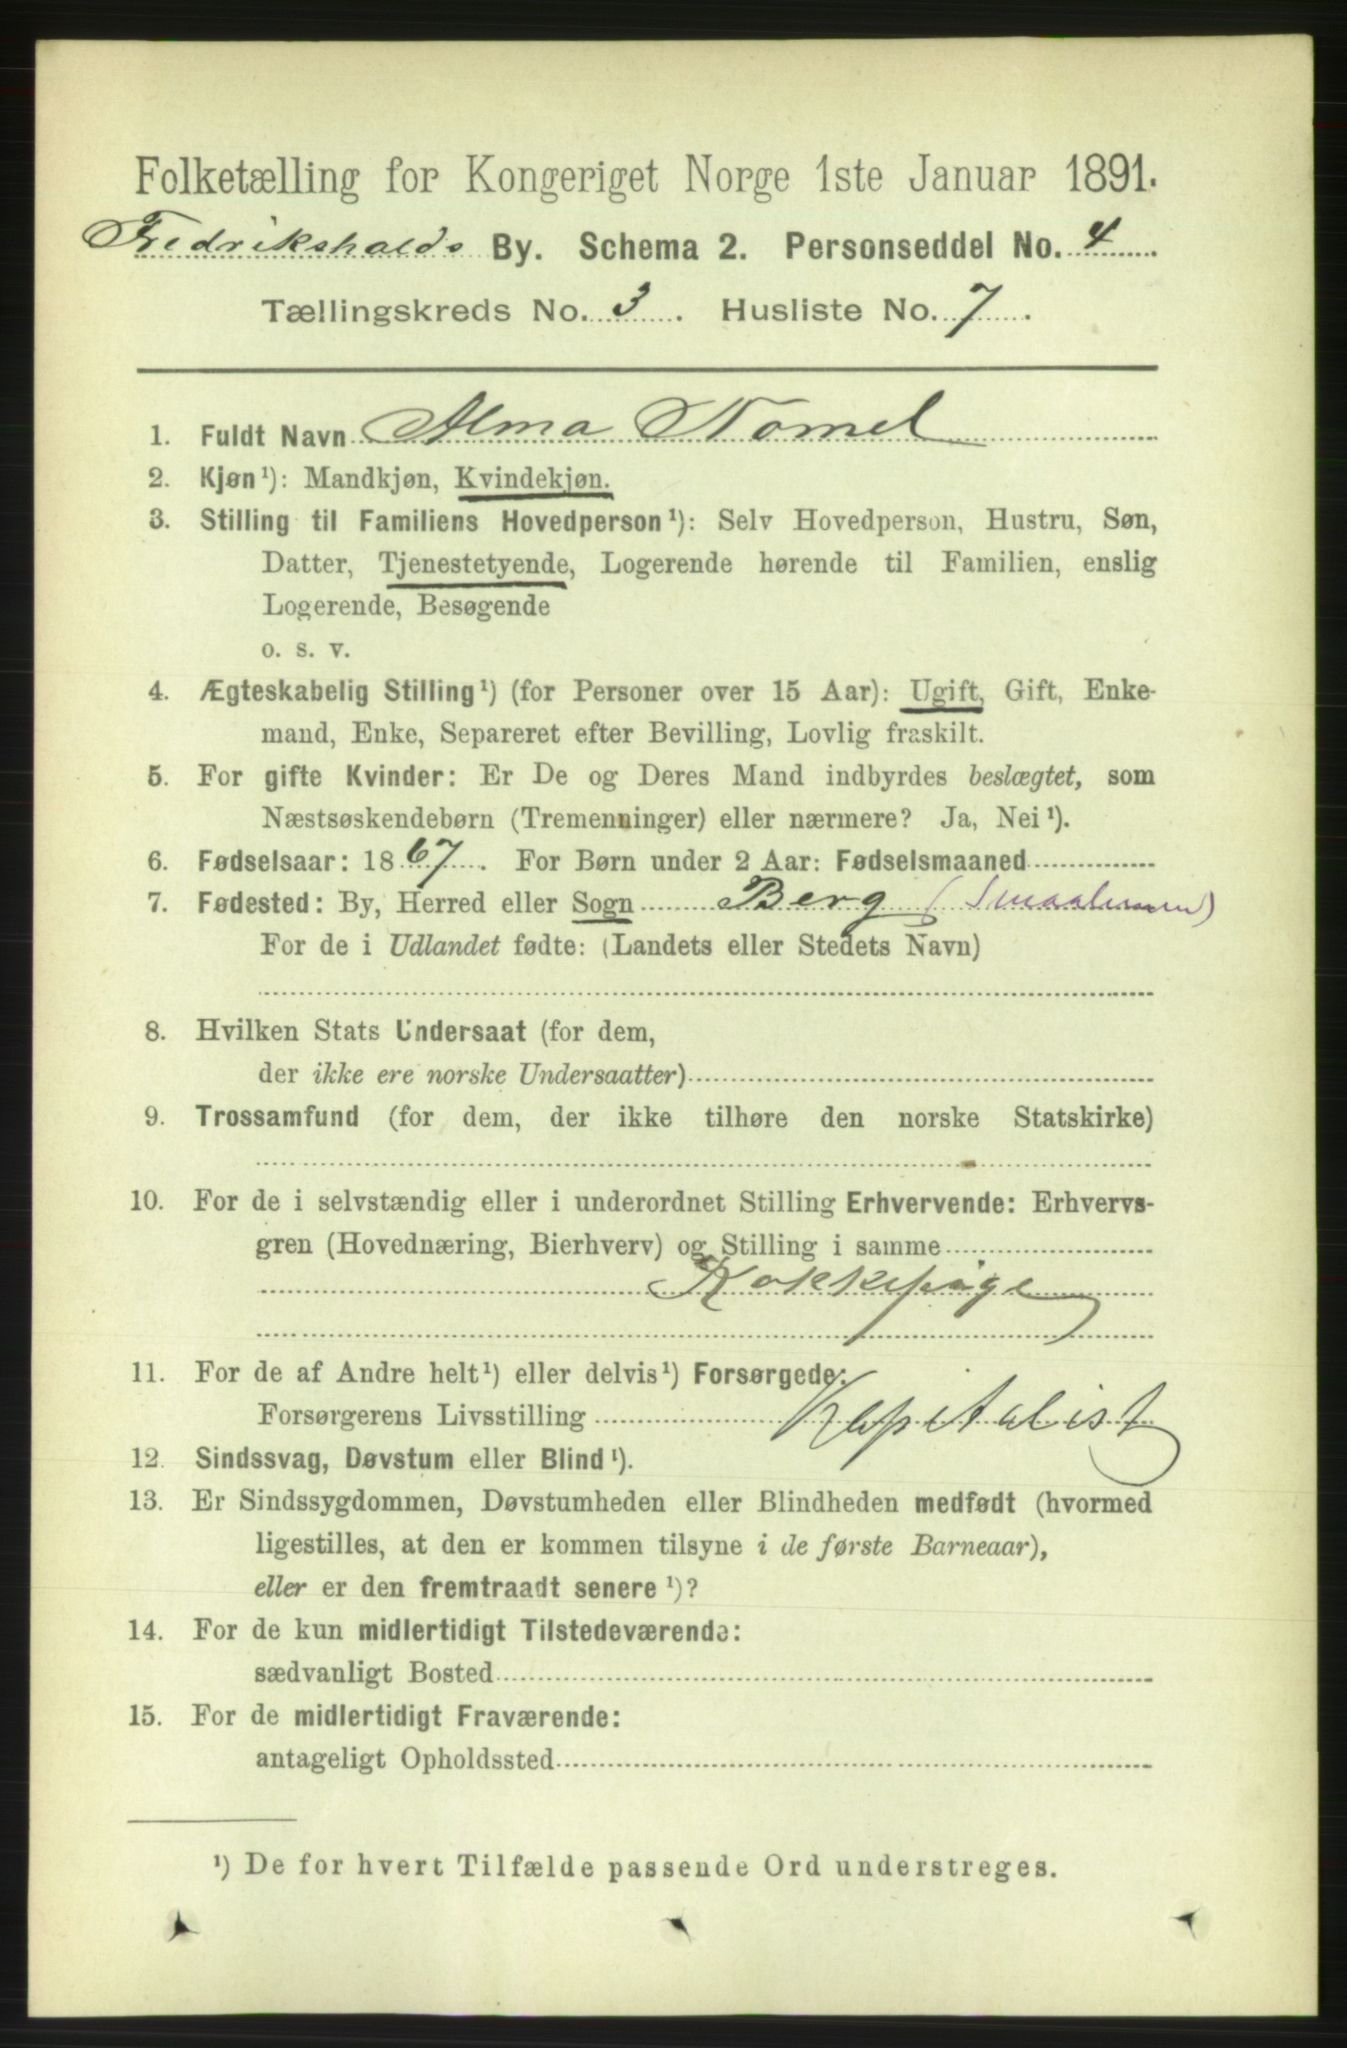 Folketælling for Kongeriget Norge 1ste Januar 1891.
Fredrikshalds By. Schema 2. Personseddel No. 4
Tællingskreds No. 3. Husliste No. 7.
1. Fuldt Navn Alma Nomel
2. Kjøn¹): Mandkjøn, Kvindekjøn.
3. Stilling til Familiens Hovedperson¹): Selv Hovedperson, Hustru, Søn,
Datter, Tjenestetyende, Logerende hørende til Familien, enslig
Logerende, Besøgende
o. s. v.
4. Ægteskabelig Stilling¹) (for Personer over 15 Aar): Ugift, Gift, Enke-
mand, Enke, Separeret efter Bevilling, Lovlig fraskilt.
5. For gifte Kvinder: Er De og Deres Mand indbyrdes beslægtet, som
Næstsøskendebørn (Tremenninger) eller nærmere? Ja, Nei¹).
6. Fødselsaar: 1867. For Børn under 2 Aar: Fødselsmaaned
7. Fødested: By, Herred eller Sogn Berg (Smaalenene)
For de i Udlandet fødte: (Landets eller Stedets Navn)
8. Hvilken Stats Undersaat (for dem,
der ikke ere norske Undersaatter)
9. Trossamfund (for dem, der ikke tilhøre den norske Statskirke)
10. For de i selvstændig eller i underordnet Stilling Erhvervende: Erhvervs-
gren (Hovednæring, Bierhverv) og Stilling i samme
Kokkepige
11. For de af Andre helt¹) eller delvis¹) Forsørgede:
Forsørgerens Livsstilling Kapitalist
12. Sindssvag, Døvstum eller Blind¹).
13. Er Sindssygdommen, Døvstumheden eller Blindheden medfødt (hvormed
ligestilles, at den er kommen tilsyne i de første Barneaar),
eller er den fremtraadt senere¹)?
14. For de kun midlertidigt Tilstedeværende:
sædvanligt Bosted
15. For de midlertidigt Fraværende:
antageligt Opholdssted
¹) De for hvert Tilfælde passende Ord understreges.